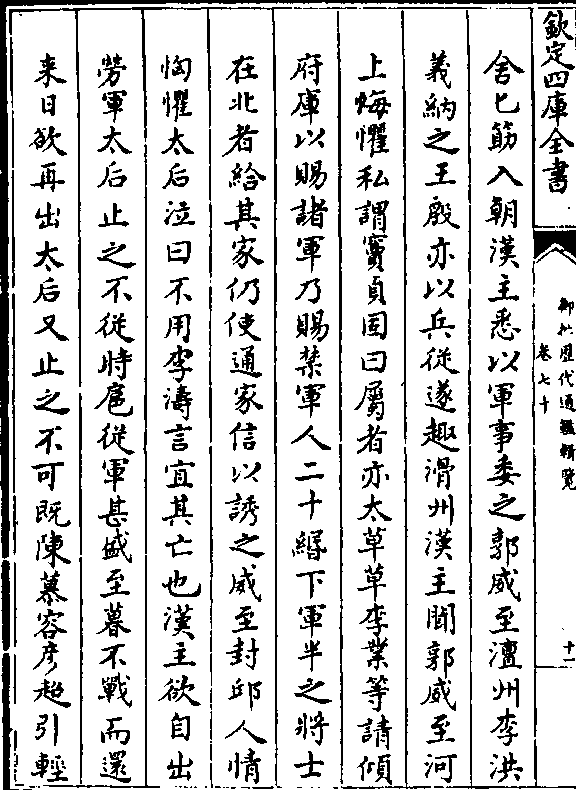 欽定四庫全書
御批歷代通鑑輯覽
卷七十
十一
舍匕筯入朝漢主悉以軍事委之郭威至澶州李洪
義納之王殷亦以兵從遂趣滑州漢主聞郭威至河
上悔懼私謂竇貞固曰屬者亦太草草李業等請傾
府庫以賜諸軍乃賜禁軍人二十緡下軍半之將士
在北者給其家仍使通家信以誘之威至封邱人情
恟懼太后泣曰不用李濤言宜其亡也漢主欲自出
勞軍太后止之不從時扈從軍甚盛至暮不戰而還
来日欲再出太后又止之不可既陳慕容彦超引輕